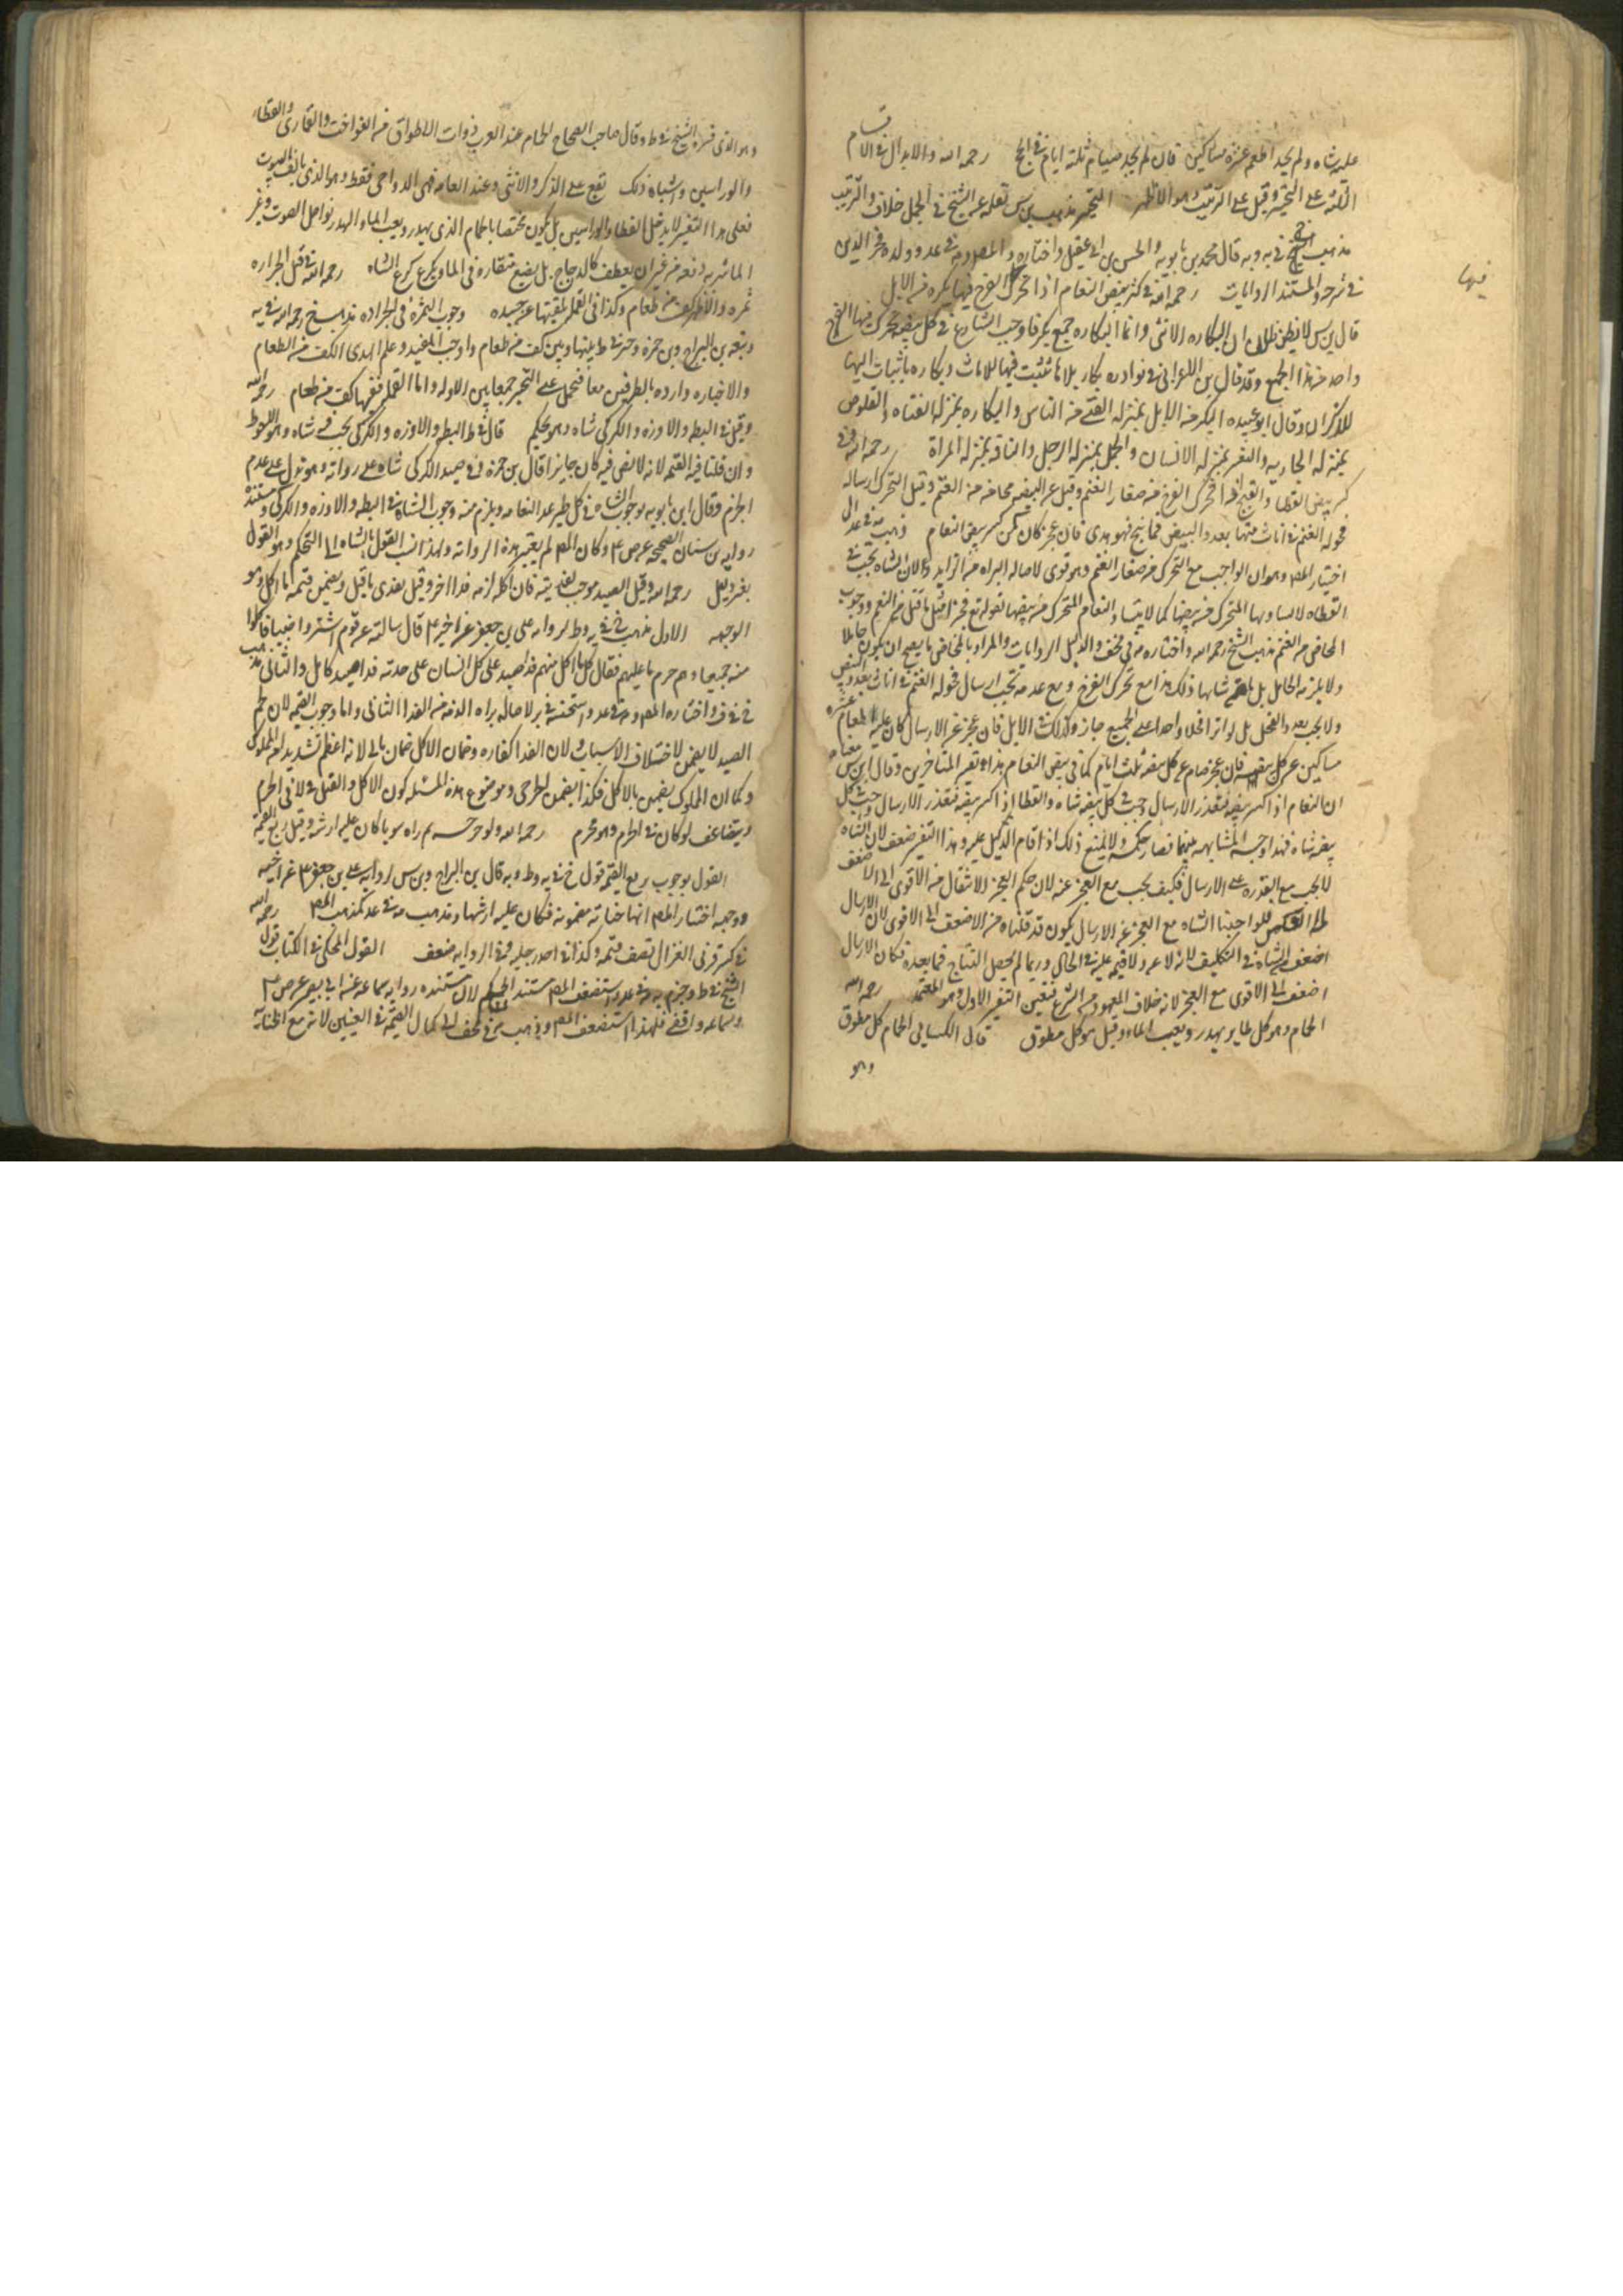 عليه شاه ولم يجد اطعم عشرة مساكين فان لم يجد صيام ثلثة ايام في الحج رحمه الله والابدال في الاقسام
الثلثة على التخيير وقيل على الترتيب وهو الاظهر التخيير مذهب بن س نقله عن الشيخ في الجمل خلاف والترتيب
مذهب الشيخ في يه وبه قال محمد بن بابويه والحسن بن ابي عقيل واختاره المص وم في عد وولده فخر الدين
في شرحه والمستند الروايات رحمه الله في كسر بيض النعام اذا تحرك الفرخ فيها بكره من الابل
قال بن س لا يظن ظان ان البكاره الانثى وانما البكاره جمع بكر فاوجب الشارع في كل بيضه تحرك فيها الفرخ
واحد من هذا الجمع وقد قال بن الاعرابي في نوادره بكار بلا ها تثبت فيها للاناث وبكاره باثبات الها
للذكران وقال ابو عبيده البكر من الابل بمنزله الفتى من الناس والبكاره بمنزله الفتاه والقلوص
بمنزله الجاريه والبعير بمنزله الانسان والجمل بمنزله الرجل والناقه بمنزله المراة رحمه الله في
كسر بيض القطا والقبج اذا تحرك الفرخ من صغار الغنم وقيل عن البيضه مخاض من الغنم وقبل التحرك ارسال
فحوله الغنم في اناث منها بعدد البيض فما نتج فهو هدي فان عجز كان كمن كسر بيض النعام ذهب في عد الى
اختيار المص وهو ان الواجب مع التحرك من صغار الغنم وهو قوى لاصاله البراه من الزايد ولان الشاه تجب في
القطاه لا يساويها المتحرك من بيضها كما لا يتساوى النعام المتحرك من بيضها لقوله تع فجزا مثل ما قتل من النعم ووجوب
المخاض من الغنم مذهب الشيخ رحمه الله واختاره في مختلف والدليل الروايات والمراد بالمخاض ما يصح ان يكون حاملا
ولا يلزمه الحامل بل ما شابها ذلك هذا مع تحرك الفرخ ومع عدمه تجب ارسال فحوله الغنم في اناث بعدد البيض
ولا يجب بعدد الفحل بل لو انزا فحلا واحدا على الجميع جاز وكذلك في الابل فان عجز عن الارسال كان عليه اطعام عشره
مساكين عن كل بيضه فان عجز صام عن كل بيضه ثلث ايام كما في بيض النعام هذا تفسير المتاخرين وقال ابن س معناه
ان النعام اذا كسر بيضه فتعذر الارسال وجب في كل بيضه شاه والقطا اذا كسر بيضه فتعذر الارسال وجب في كل
بيضه شاه فهذا وجه المشابهه بينهما فصار حكمه ولا يمتنع ذلك اذا قام الدليل عليه وهذا التفسير ضعف لان الشاه
لا تجب مع القدره على الارسال فكيف تجب مع العجز عنه لان حكم العجز الانتقال من الاقوى الى الاضعف
لا العكس فلو اوجبنا الشاه مع العجز عن الارسال يكون قد نقلناه من الاضعف الى الاقوى لان الارسال
اضعف من الشاه في التكليف لانه لا عسر ولا قيمه عليه في الحال وربما لم يحصل النتاج فيما بعده فكان الارسال
اضعف الى الاقوى مع العجز لانه خلاف المعهود من الشرع فتعين التفسير الاول وهو المعتمد رحمه الله
الحمام وهو كل طاير يهدر ويعب الماء وقيل هو كل مطوق قال الكسائي الحمام كل مطوق
وهو
فيها
وهو الذي فسره الشيخ في ط وقال صاحب الصحاح الحمام عند العرب ذوات الاطواق من الفواخت والقماري والقطا
والوراسين واشباه ذلك تقع على الذكر والانثى وعند العامه فهي الدواجن فقط وهو الذي يالف البيوت
فعلى هذا التفسير لا يدخل القطا والوراسين بل يكون مختصا بالحمام الذي يهدر ويعب الماء والهدر تواصل الصوت وعب
الماء شربه دفعه من غير ان يعطف كالدجاج بل يضع منقاره في الماء ويكرع كرع الشاه رحمه الله في قتل الجراده
تمره والاظهر كف من طعام وكذا في القمله يلقيها عن جسده وجوب التمره في الجراده مذهب خ رحمه الله في يه
وتبعه بن البراج وبن حمزه وخير في ط بينها وبين كف من طعام واوجب المفيد وعلم الهدى الكف من الطعام
والاخبار وارده بالطرفين معا فتحمل على التخيير جمعا بين الادله واما القمله ففيها كف من طعام رحمه الله
وقيل في البطه والاوزه والكركي شاه وهو تحكم قال في ط البط والاوزه والكركي يجب فيه شاه وهو الاحوط
وان قلنا فيه القيمه لانه لا نص فيه كان جايزا قال بن حمزه في صيد الكركي شاه على روايه وهو يدل على عدم
الجزم وقال ابن بابويه بوجوب الشاه في كل طير عدا النعامه ويلزم منه وجوب الشاه في البطه والاوزه والكركي ومستنده
روايه بن سنان الصحيحه عن ص ع وكان المص لم يعتبر هذه الروايه ولهذا نسب القول بالشاه الى التحكم وهو القول
بغير دليل رحمه الله وقيل الصيد موجب لفديته فان اكله لزمه فدا اخر وقيل يفدى ما قتل ويضمن قيمه ما اكل وهو
الوجه الاول مذهب خ في يه وط لروايه علي بن جعفر عن اخيه ع قال سالته عن قوم اشتروا ضبيا فاكلوا
منه جميعا وهم حرم ما عليهم فقال كل من اكل منهم فدا صيد على كل انسان على حدته فدا صيد كامل والثاني مذهب
في ف واختاره المص وم في عد واستحسنه في ير لاصاله براه الذمه من الفدا الثاني واما وجوب القيمه لان لحم
الصيد لا يضمن لاختلاف الاسباب ولان الفدا كفاره وضمان الاكل ضمان مالي لانه اعظم
وكما ان المملوك يضمن بالاكل فكذا يضمن وموضوع هذه المسئله كون الاكل والقتل في لا في الحرم
ويتضاعف لو كان في الحرم وهو محرم رحمه الله ولو جرحه ثم راه سويا كان عليه ارشه وقيل ربع القيمه
القول بوجوب ربع القيمه قول خ في يه وط وبه قال بن البراج وبن س لروايه علي بن جعفر ع عن اخيه
ووجه اختيار المص انها جنايه مضمونه فكان عليه ارشها ومذهب مه في عد كمذهب المص رحمه الله
في كسر قرني الغزال نصف قيمته وكذا في احد رجليه وفي الروايه ضعف القول المحكي في الكتاب قول
الشيخ في ط وجزم به في عد واستضعف المص مستند الحكم لان مستنده روايه سماعه عن ابي بصير عن ص ع
وسماعه واقفي فلهذا استضعف المص وذهب في مختلف الى كمال القيمه في العينين لانه مع الجنايه